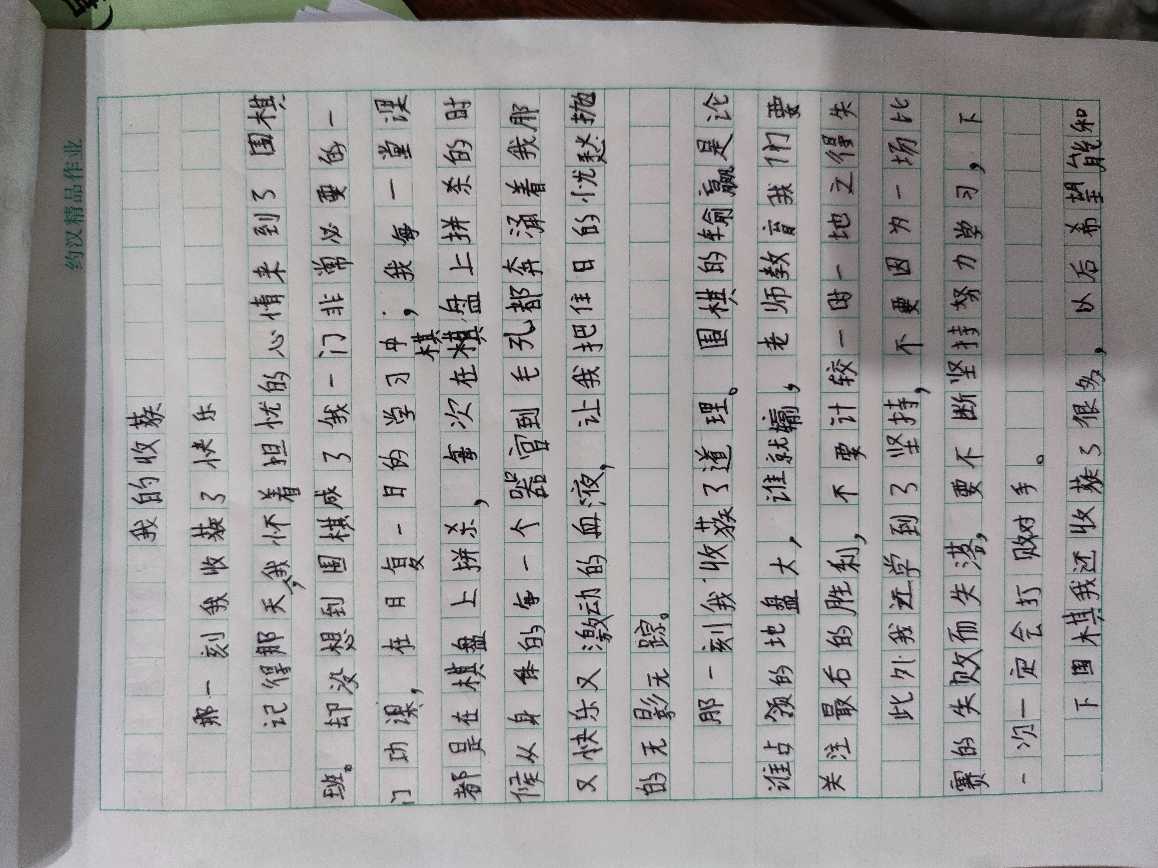 约汉精品作业
我的收获
那一刻我收获了快乐
记得那天,我怀着担忧的心情来到了围棋
班。却没想到围棋成了我一门非常必要的一
门功课,在日复一日的学习中,我每一堂课
都是在棋盘上拼杀,每次在棋盘上拼杀的时
候从身体的每一个器官到毛孔都奔涌着我那
又快乐又激动的血液,让我把住日的忧愁抛
的无影无踪。
那一刻我收获了道理。围棋的输赢是论
谁占领的地盘大,谁就输,老师教育我们要
关注最后的胜利,不要计较一时一地之得失
此外我还学到了坚持,不要因为一场比
赛的失败而失落,要不断坚持努力学习,下
一次一定会打败对手。
下围棋我还收获了很多,以后希望能和